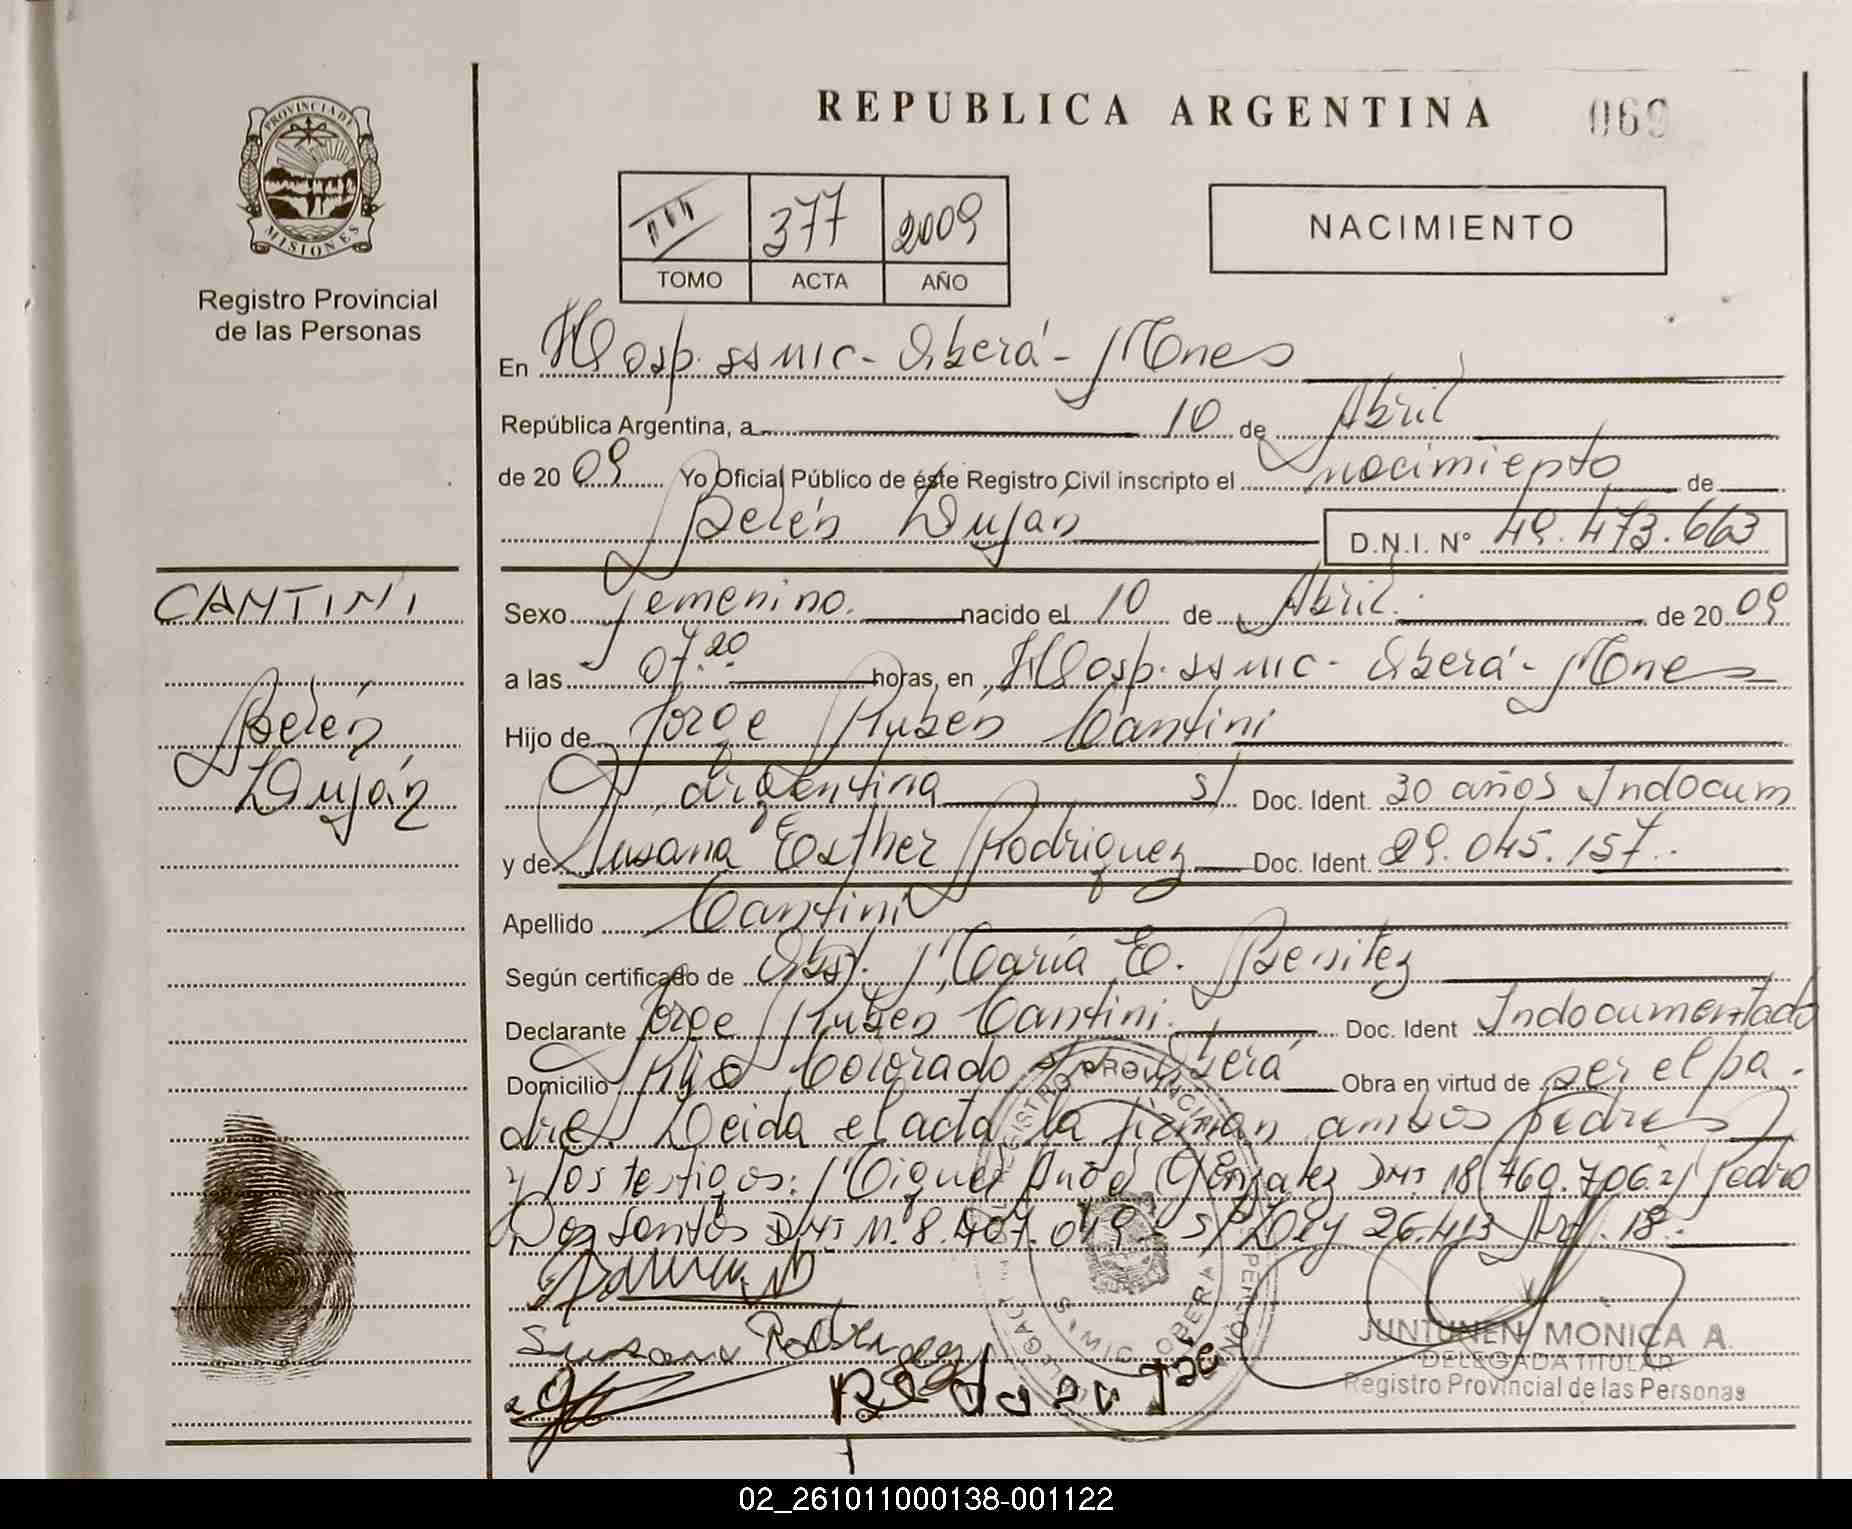 PROVINCIA DE
MISIONES
Registro Provincial
de las Personas
REPUBLICA ARGENTINA 069
III 377 2009
TOMO ACTA AÑO
NACIMIENTO
En Hosp. SAMIC - Oberá - Mnes
República Argentina, a 10 de Abril
de 20 09 Yo Oficial Público de éste Registro Civil inscripto el nacimiento de
Belén Luján D.N.I. Nº 49.473.663
CANTINI
Belén
Luján
Sexo femenino. nacido el 10 de Abril. de 20 09
a las 07.20 horas, en Hosp. SAMIC - Oberá - Mnes
Hijo de Jorge Rubén Cantini
argentina s/ Doc. Ident. 30 años Indocum
y de Susana Esther Rodriguez Doc. Ident. 29.045.157.
Apellido Cantini
Según certificado de Obst. María E. Benitez
Declarante Jorge Rubén Cantini. Doc. Ident Indocumentado
Domicilio Km 8 Colorado Oberá Obra en virtud de ser el pa-
dre. Leida el acta la firman ambos padres
y los testigos: Miguel González DNI 18.760.706 y Pedro
Dos Santos DNI M. 8.407.019 - s/ Ley 26.413 Art. 18.
Susana Rodriguez
JUNTUNEN MONICA A.
DELEGADA TITULAR
Registro Provincial de las Personas
02_261011000138-001122